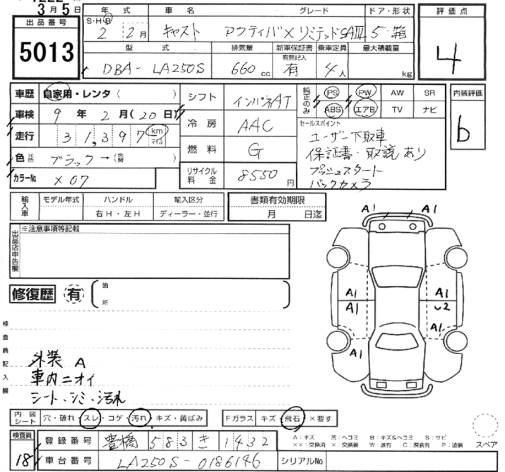 3月5日
出品番号
5013
年式 車名 グレード ドア・形状
S・H・R 2年 2月 キャスト アクティバX リミテッドSAⅢ 5 箱
型式 排気量 新車保証書 乗車定員 最大積載量
有無記入
DBA-LA250S 660cc 有 4人 kg
評価点
4
車歴 自家用・レンタ( )
車検 9年 2月(20日)
走行 31,397 km マイル
色 ブラック→( )
カラーNo. X07
シフト インパネAT
冷房 AAC
燃料 G
リサイクル料金 8550円
純正のみ
PS PW AW SR
ABS エアB TV ナビ
セールスポイント
ユーザー下取車
保証書・取説あり
プッシュスタート
バックカメラ
内装評価
b
輸入車 モデル年式 ハンドル 輸入区分
右H・左H ディーラー・並行
書類有効期限
月 日迄
出品店申告欄
※注意事項等記載
修復歴 有 箇所
検査員記入欄
外装 A
車内ニオイ
シート・シミ・汚れ
A1 A1
A1 A1
A1 U2
A1 A1
内装シート 穴・破れ・スレ・コゲ・汚れ・キズ・黄ばみ Fガラス キズ・飛石・×要す
検査員 18
登録番号 豊橋 583 き 1432
車台番号 LA250S-0186146 シリアルNo.
スペア